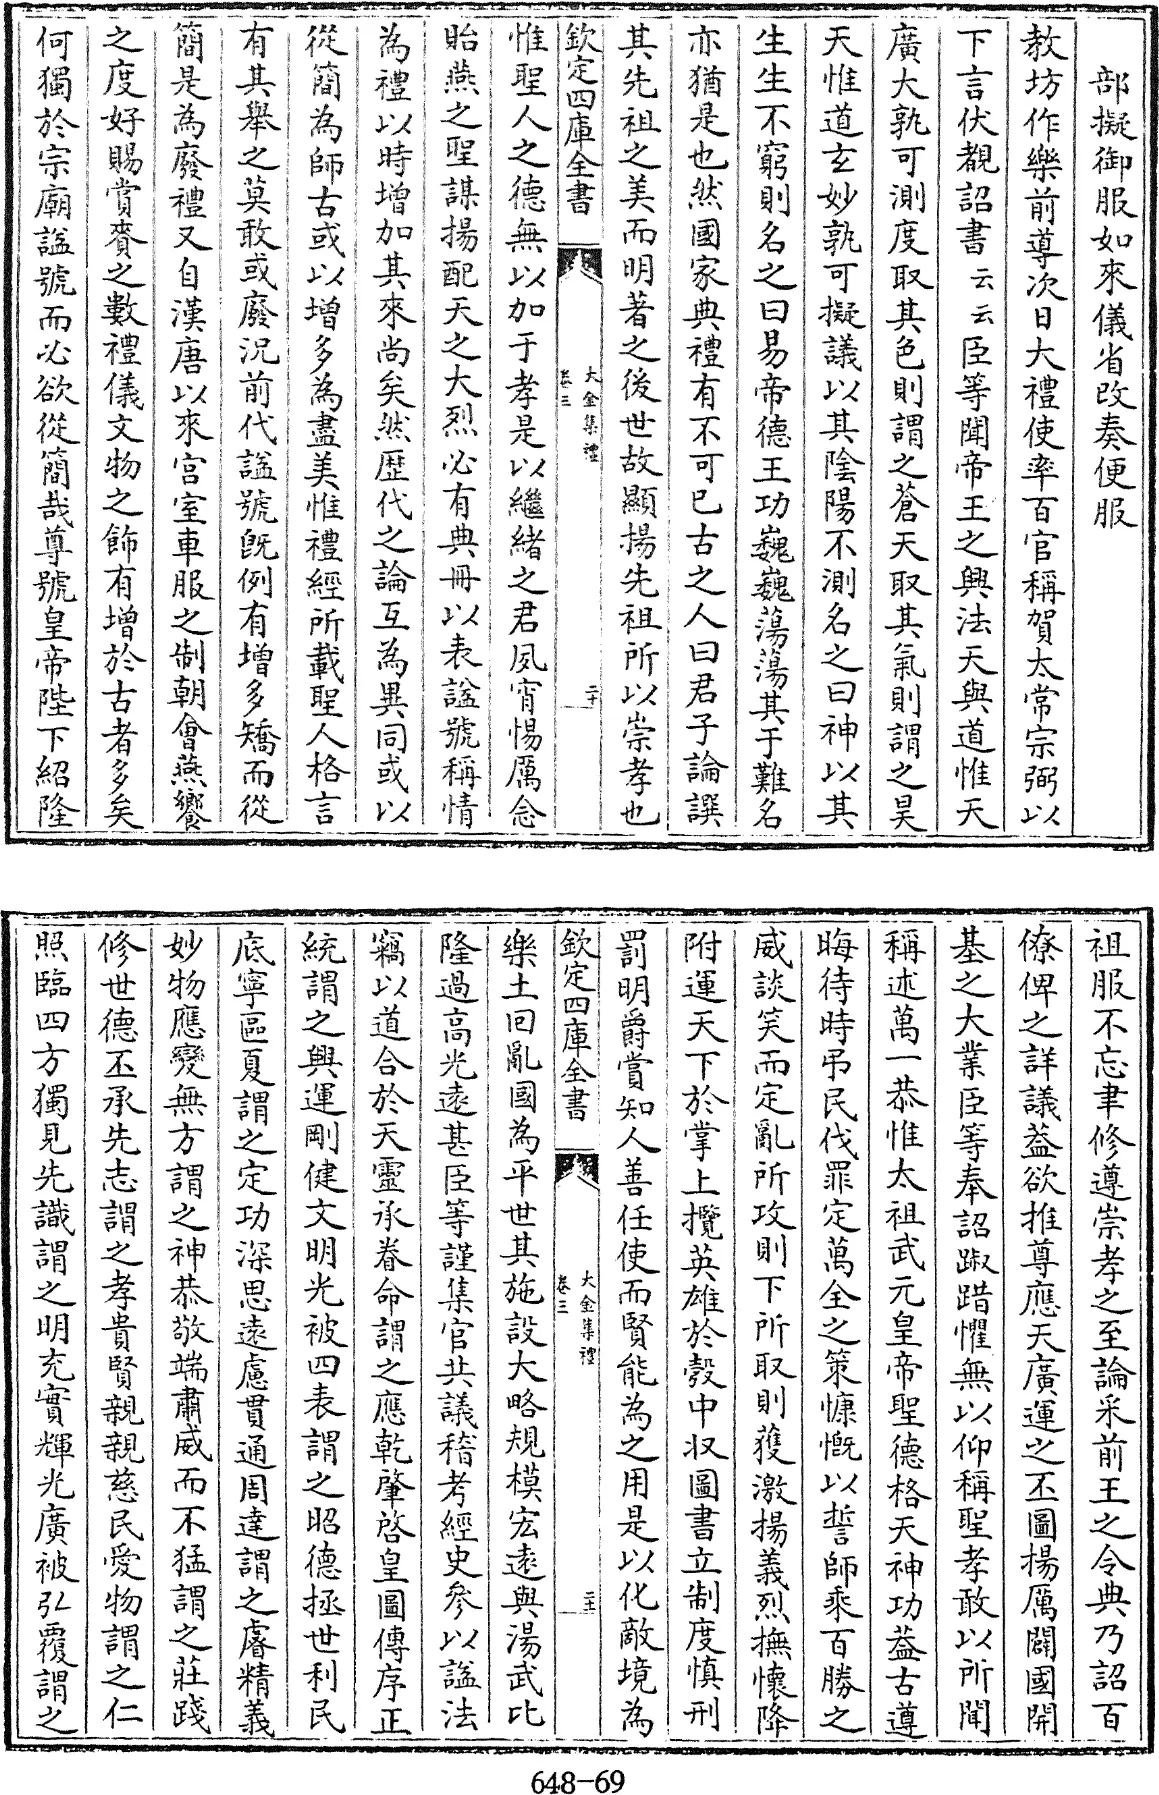 部擬御服如來儀省改奏便服
教坊作樂前導次日大禮使率百官稱賀太常宗弼以
下言伏覩詔書云云臣等聞帝王之興法天與道惟天
廣大孰可測度取其色則謂之蒼天取其氣則謂之昊
天惟道玄妙孰可擬議以其陰陽不測名之曰神以其
生生不窮則名之曰易帝德王功巍巍蕩蕩其于難名
亦猶是也然國家典禮有不可已古之人曰君子論譔
其先祖之美而明著之後世故顯揚先祖所以崇孝也
欽定四庫全書
大金集禮
卷三
二十
惟聖人之德無以加于孝是以繼緒之君夙宵惕厲念
貽燕之聖謀揚配天之大烈必有典冊以表諡號稱情
為禮以時增加其來尚矣然歴代之論互為異同或以
從簡為師古或以增多為盡美惟禮經所載聖人格言
有其舉之莫敢或廢況前代諡號旣例有增多矯而從
簡是為廢禮又自漢唐以來宮室車服之制朝會燕饗
之度好賜賞賚之數禮儀文物之飾有增於古者多矣
何獨於宗廟諡號而必欲從簡哉尊號皇帝陛下紹隆
祖服不忘聿修遵崇孝之至論采前王之令典乃詔百
僚俾之詳議葢欲推尊應天廣運之丕圖揚厲闢國開
基之大業臣等奉詔踧踖懼無以仰稱聖孝敢以所聞
稱述萬一恭惟太祖武元皇帝聖德格天神功葢古遵
晦待時弔民伐罪定萬全之策慷慨以誓師乘百勝之
威談笑而定亂所攻則下所取則獲激揚義烈撫懷降
附運天下於掌上攬英雄於彀中収圖書立制度慎刑
罰明爵賞知人善任使而賢能為之用是以化敵境為
欽定四庫全書
大金集禮
卷三
二十一
樂土回亂國為平世其施設大略規模宏遠與湯武比
隆過高光遠甚臣等謹集官共議稽考經史參以諡法
竊以道合於天靈承眷命謂之應乾肇啓皇圖傳序正
統謂之興運剛健文明光被四表謂之昭德拯世利民
底寧區夏謂之定功深思遠慮貫通周達謂之睿精義
妙物應變無方謂之神恭敬端肅威而不猛謂之莊踐
修世德丕承先志謂之孝貴賢親親慈民愛物謂之仁
照臨四方獨見先識謂之明充實輝光廣被弘覆謂之
648-69